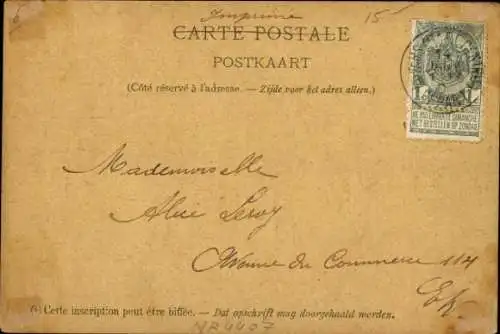 Imprimé
15
CARTE POSTALE
POSTKAART
(Côté réservé à l'adresse. — Zijde voor het adres alleen.)
NE PAS LIVRER LE DIMANCHE
NIET BESTELLEN OP ZONDAG
Mademoiselle
Alice Leroy
Avenue du Commerce 114
(1) Cette inscription peut être biffée. — Dat opschrift mag doorgehaald worden.